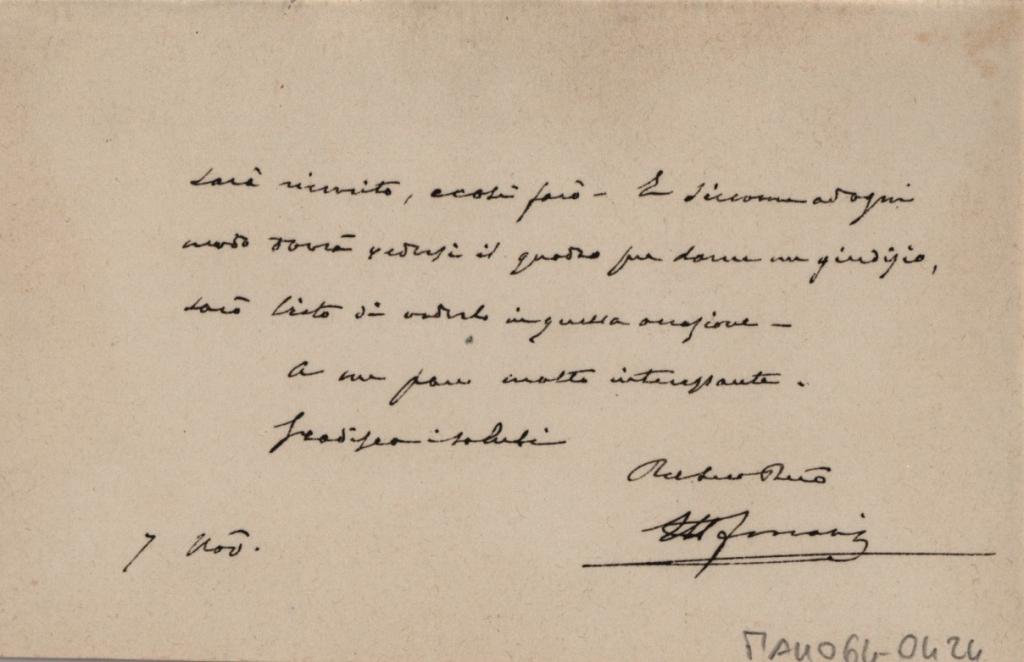 sarà riunito, ecosì farò - E siccome adogni
modo dovrà vedersi il quadro per darne un giudizio,
sarò lieto di vederlo in quella occasione -
A me pare molto interessante.
Gradisca i saluti
7 Nov.
MAN064-0424